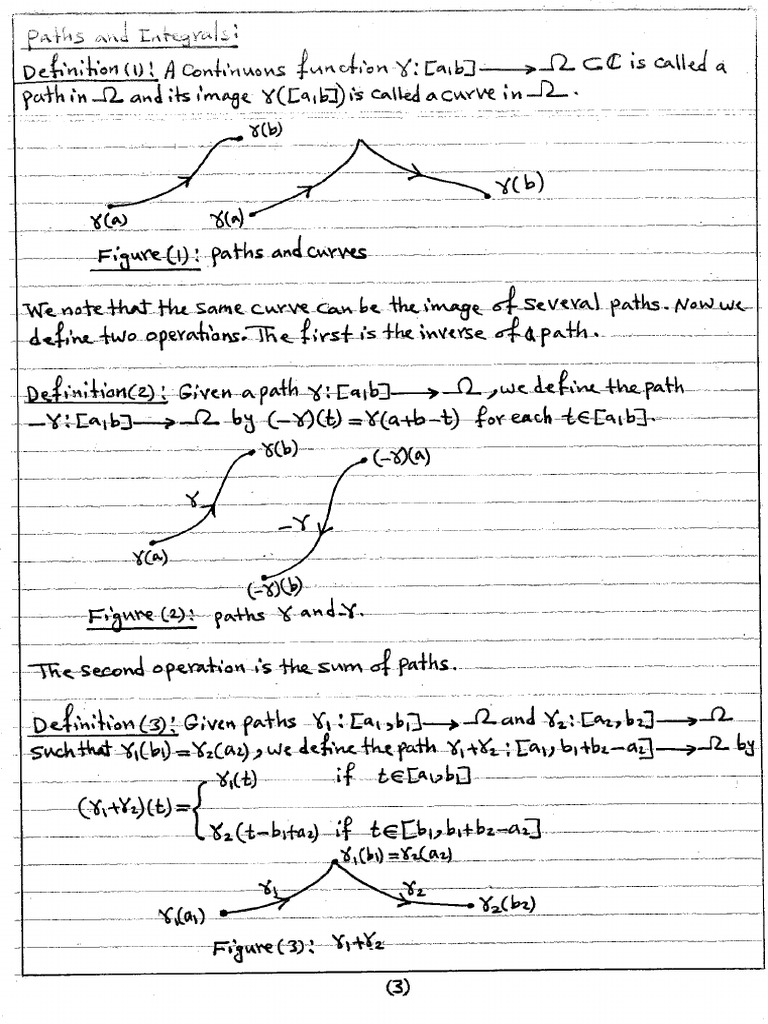 Paths and Integrals:
Definition(1): A continuous function γ:[a,b]⟶Ω⊂ℂ is called a
path in Ω and its image γ([a,b]) is called a curve in Ω.
γ(b)
γ(b)
γ(a)
γ(a)
Figure(1): paths and curves
We note that the same curve can be the image of several paths. Now we
define two operations. The first is the inverse of a path.
Definition(2): Given a path γ:[a,b]⟶Ω, we define the path
-γ:[a,b]⟶Ω by (-γ)(t)=γ(a+b-t) for each t∈[a,b].
γ(b)
(-γ)(a)
γ
-γ
γ(a)
(-γ)(b)
Figure(2): paths γ and -γ.
The second operation is the sum of paths.
Definition(3): Given paths γ₁:[a₁,b₁]⟶Ω and γ₂:[a₂,b₂]⟶Ω
such that γ₁(b₁)=γ₂(a₂), we define the path γ₁+γ₂:[a₁,b₁+b₂-a₂]⟶Ω by
γ₁(t) if t∈[a₁,b₁]
(γ₁+γ₂)(t)={
γ₂(t-b₁+a₂) if t∈[b₁,b₁+b₂-a₂]
γ₁(b₁)=γ₂(a₂)
γ₁ γ₂
γ₁(a₁) γ₂(b₂)
Figure(3): γ₁+γ₂
(3)